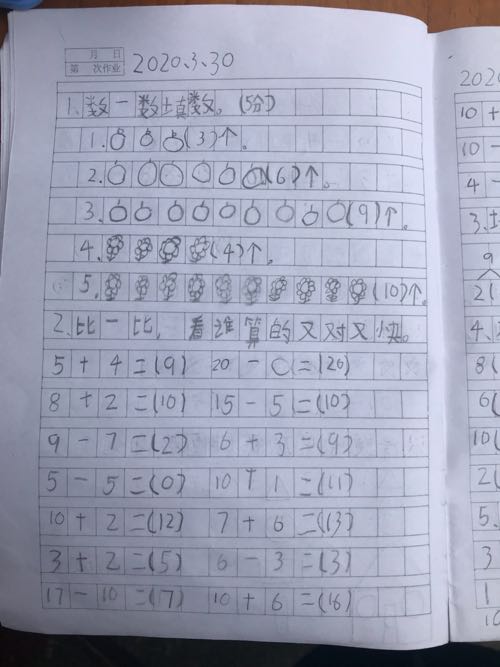 月 日
第 次作业
2020.3.30
1.数一数填数。(5分)
1.(3)个。
2.(6)个。
3.(9)个。
4.(4)个。
5.(10)个。
2.比一比,看谁算的又对又快。
5+4=(9) 20-0=(20)
8+2=(10) 15-5=(10)
9-7=(2) 6+3=(9)
5-5=(0) 10+1=(11)
10+2=(12) 7+6=(13)
3+2=(5) 6-3=(3)
17-10=(7) 10+6=(16)
2020
10+
10-
4-
3.
9
2(
4.
8(
6(
10(
2(
5.
3
1
10